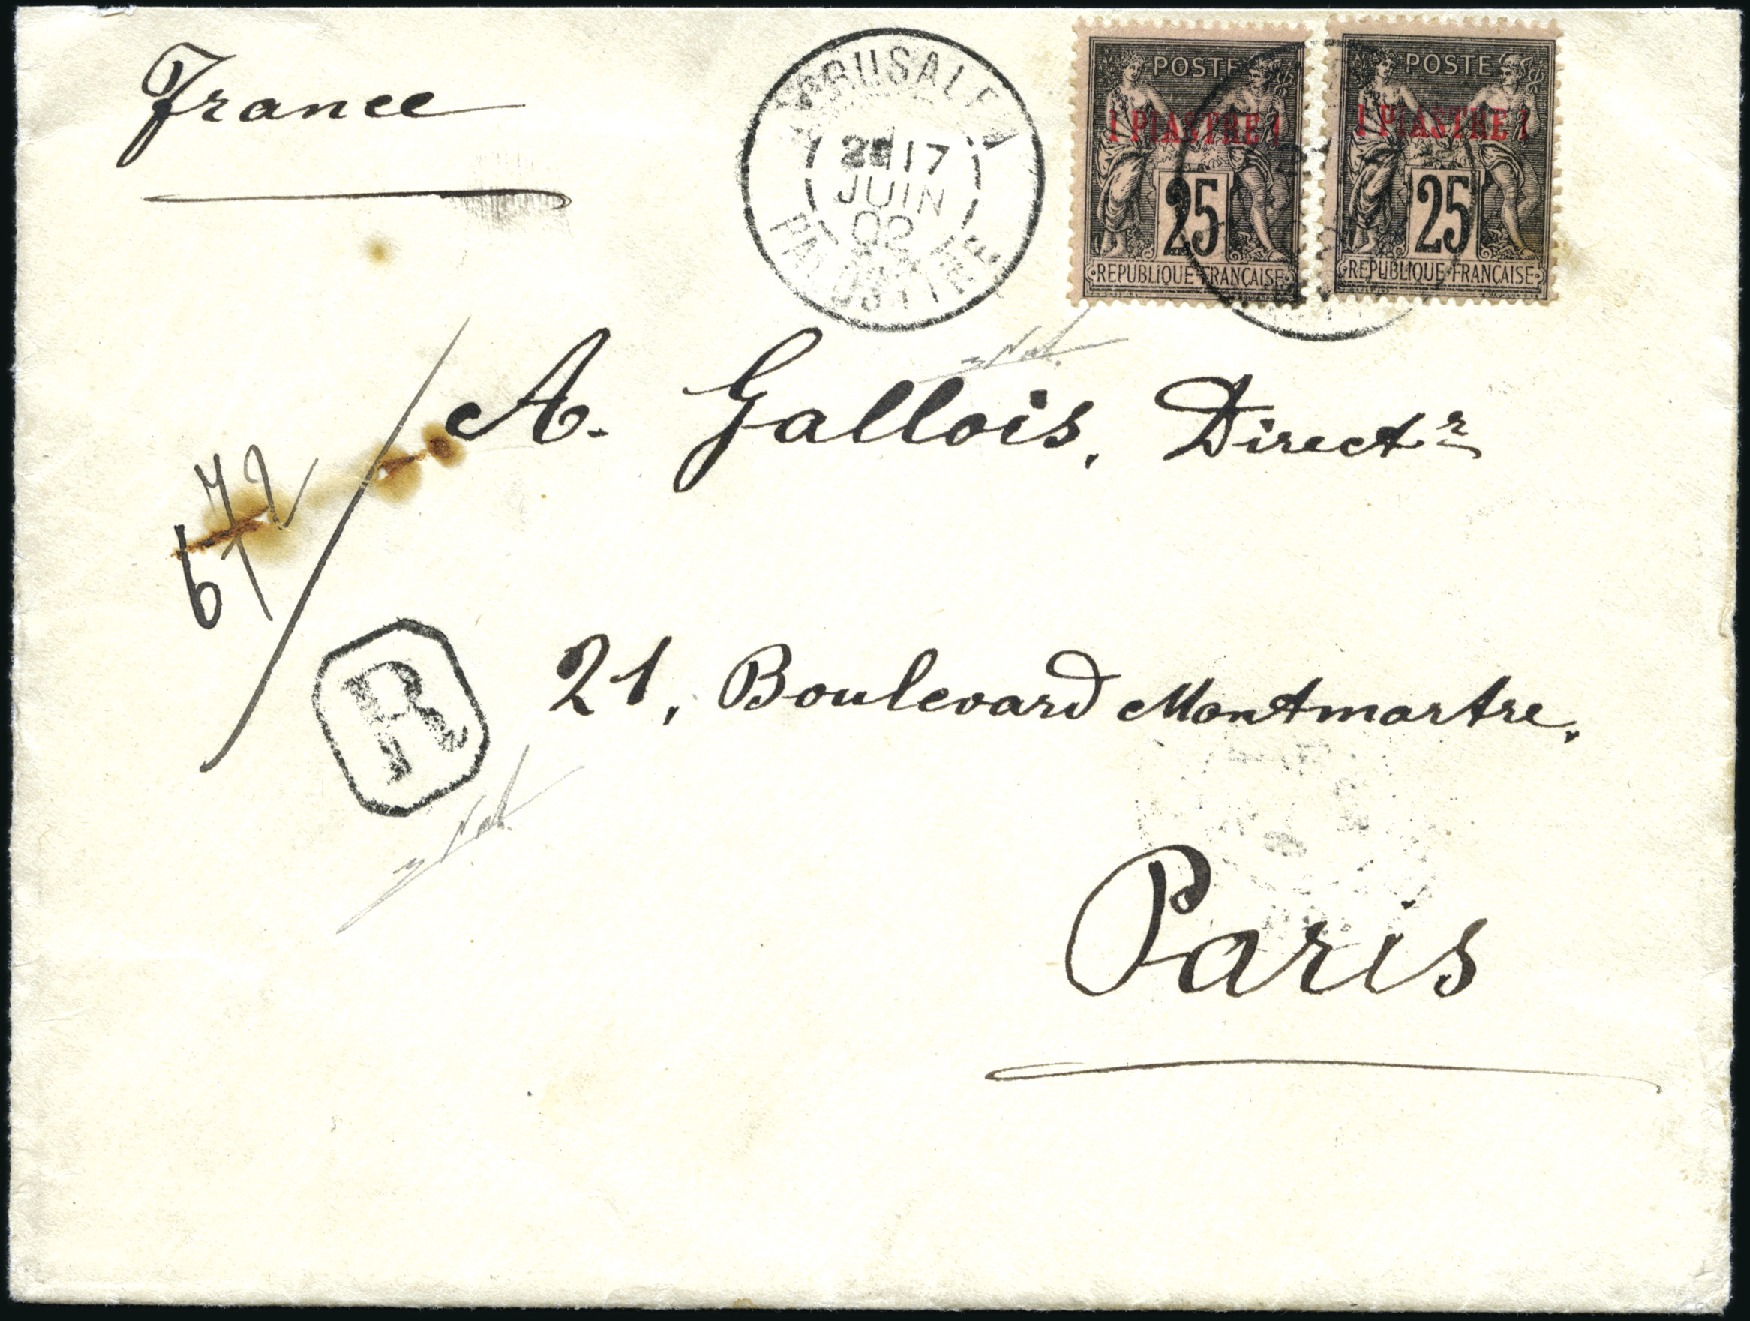 France
JERUSALEM
2E 17
JUIN
02
PALESTINE
POSTE
1 PIASTRE 1
25
REPUBLIQUE FRANÇAISE
POSTE
1 PIASTRE 1
25
REPUBLIQUE FRANÇAISE
A. Gallois, Direct^r
672
R
21, Boulevard Montmartre.
Paris